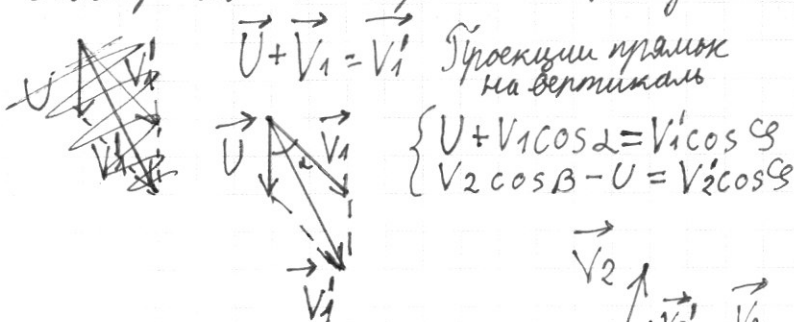 U + V1 = V1' Проекции прямых
на вертикаль
U V1'
V1'
U V1
α
{ U + V1 cos α = V1' cos φ
V2 cos β - U = V2' cos φ
V1'
V2
V2'